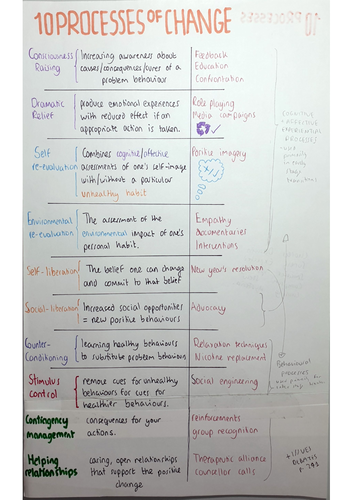 10 PROCESSES OF CHANGE
Consciousness
Raising
Increasing awareness about
causes/consequences/cures of a
problem behaviour
Feedback
Education
Confrontation
Dramatic
Relief
produce emotional experiences
with reduced effect if an
appropriate action is taken.
Role playing
Media campaigns
Self
re-evaluation
Combines cognitive/affective
assessments of one's self-image
with/without a particular
unhealthy habit
Positive imagery
Environmental
re-evaluation
The assessment of the
environmental impact of one's
personal habit.
Empathy
Documentaries
Interventions
Self-liberation
The belief one can change
and commit to that belief
New year's resolution
Social-liberation
Increased social opportunities
= new positive behaviours
Advocacy
Counter-
Conditioning
learning healthy behaviours
to substitute problem behaviours
Relaxation techniques
Nicotine replacement
Stimulus
control
remove cues for unhealthy
behaviours for cues for
healthier behaviours.
Social engineering
Contingency
management
consequences for your
actions.
reinforcements
group recognition
Helping
relationships
caring, open relationships
that support the positive
change
Therapeutic alliance
counsellor calls
Behavioural
processes